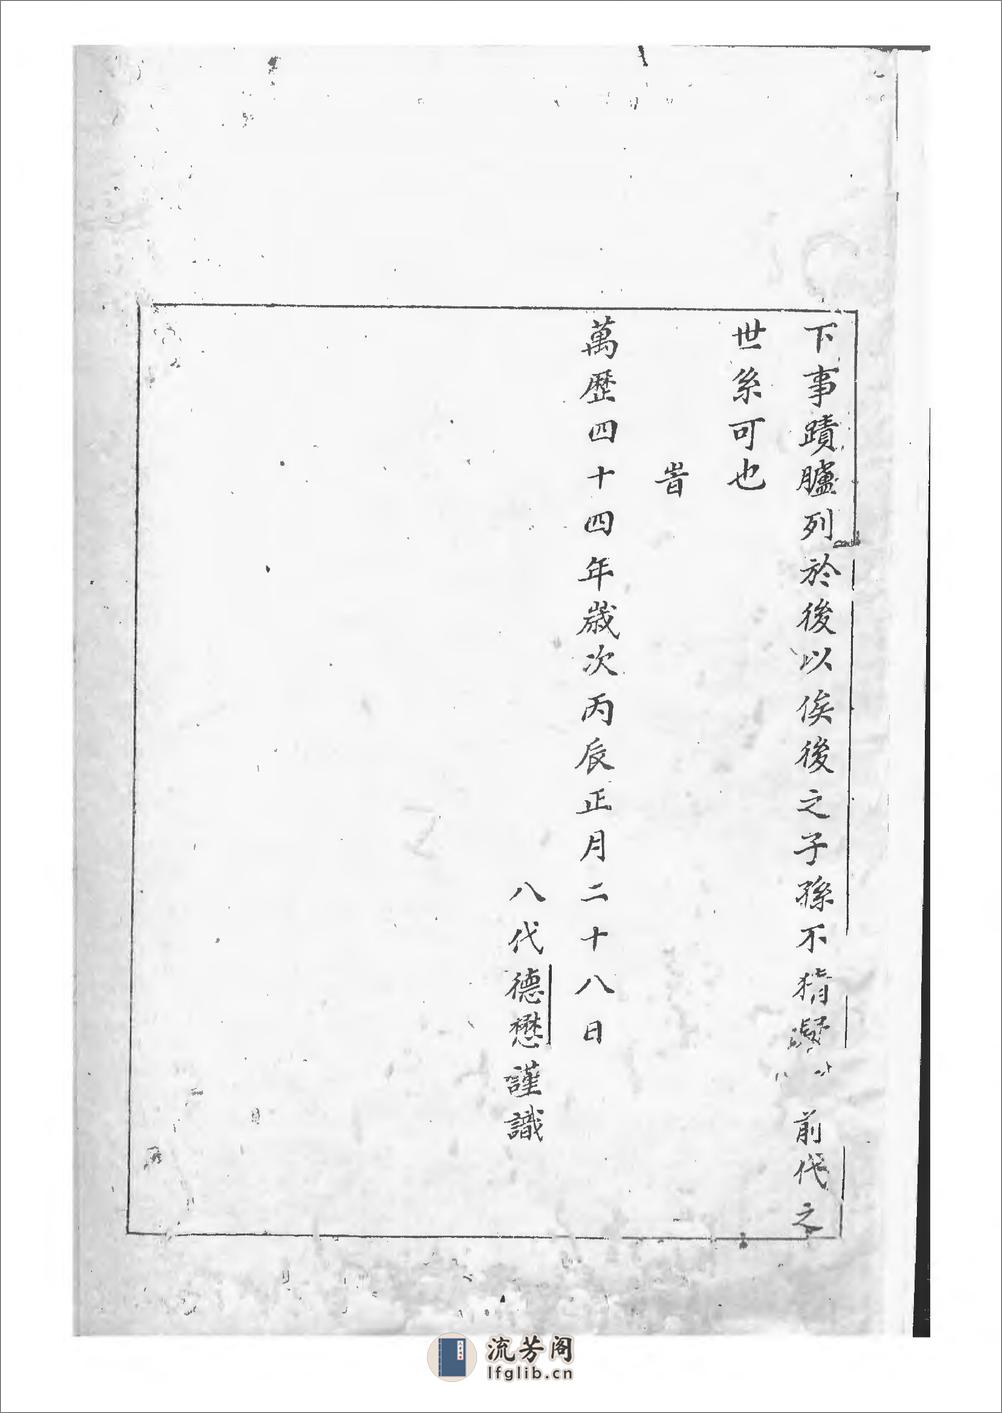 下事蹟臚列於後以俟後之子孫不猜疑前代之
世系可也
旹
萬歷四十四年歲次丙辰正月二十八日
八代德懋謹識
流芳阁
lfglib.cn